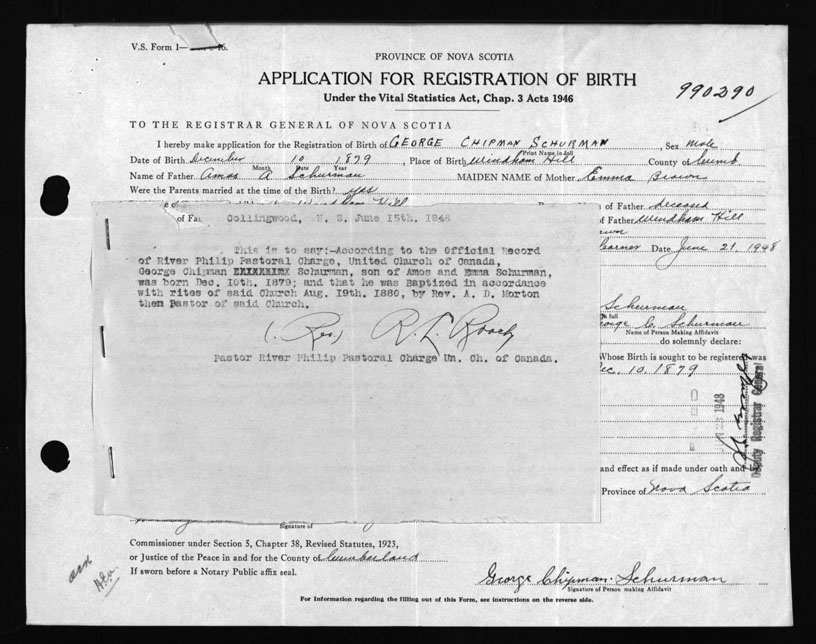 V.S. Form 1—
PROVINCE OF NOVA SCOTIA
APPLICATION FOR REGISTRATION OF BIRTH
Under the Vital Statistics Act, Chap. 3 Acts 1946
990290
TO THE REGISTRAR GENERAL OF NOVA SCOTIA
I hereby make application for the Registration of Birth of GEORGE CHIPMAN SCHURMAN, Sex male
Print Name in full
Date of Birth December 10 1879, Place of Birth Windham Hill County of Cumb.
Month Date Year
Name of Father Amos A Schurman MAIDEN NAME of Mother Emma Brown
Were the Parents married at the time of the Birth? yes
of Father deceased
of Fa
f Father Windham Hill
Date June 21, 1948
Collingwood, N. S. June 15th. 1948
This is to say:-According to the Official Record
of River Philip Pastoral Charge, United Church of Canada,
George Chipman Schurman, son of Amos and Emma Schurman,
was born Dec. 10th. 1879; and that he was Baptized in accordance
with rites of said Church Aug. 19th. 1880, by Rev. A. D. Morton
then Pastor of said Church.
(Rev) R. L. Roach
Pastor River Philip Pastoral Charge Un. Ch. of Canada.
Schurman
n full
orge C. Schurman
Name of Person Making Affidavit
do solemnly declare:
Whose Birth is sought to be registered was
ec. 10, 1879
23 1948
Deputy Registrar General
and effect as if made under oath and
Province of Nova Scotia
Signature of
Commissioner under Section 5, Chapter 38, Revised Statutes, 1923,
or Justice of the Peace in and for the County of Cumberland
If sworn before a Notary Public affix seal.
George Chipman Schurman
Signature of Person making Affidavit
For Information regarding the filling out of this Form, see instructions on the reverse side.